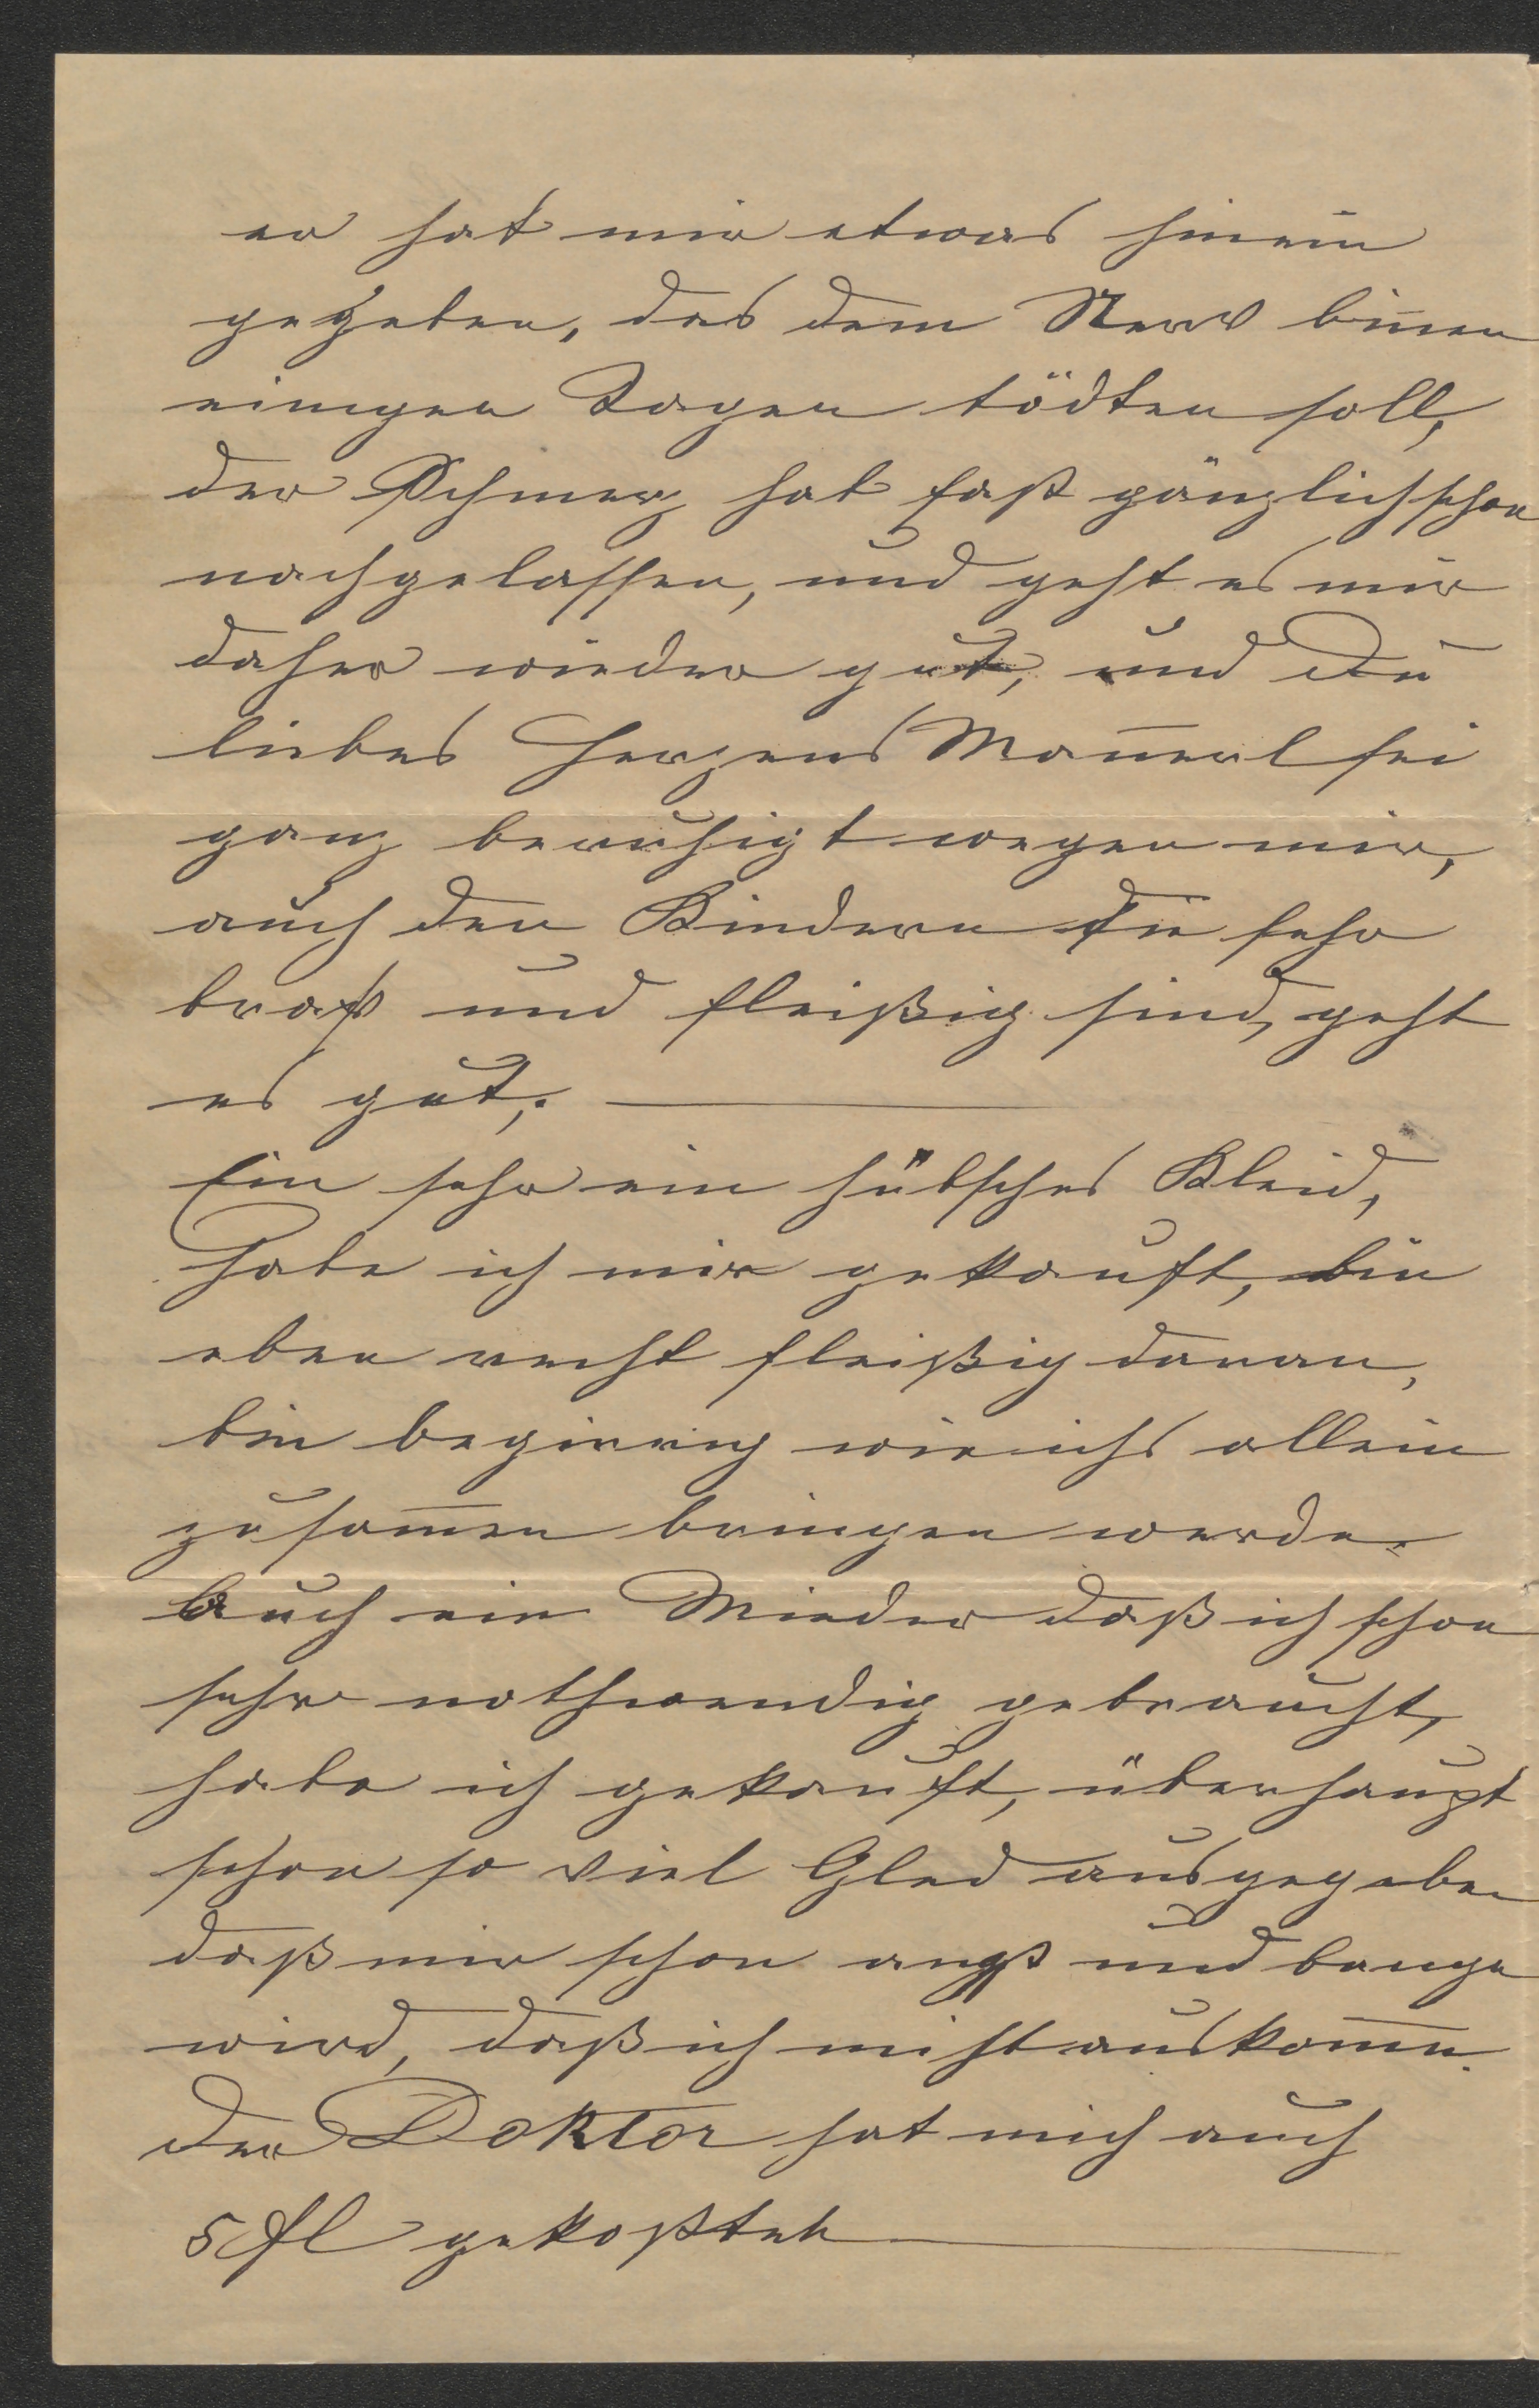 er hat mir etwas hinein
gegeben, das dem Nerv bin̄en
einigen Tagen tödten soll,
der Schmerz hat fast gänzlich schon
nachgelassen, und geht es mir
daher wieder gut, und Du
liebes Herzens Man̄erl sei
ganz beruhigt wegen mir,
auch den Kindern die sehr
brav und fleißig sind, geht
es gut,. —
Ein sehr ein hübsches Kleid,
habe ich mir gekauft, bin
eben recht fleißig daran,
bin begierig wie ichs allein
zusam̄en bringen werde.
Auch ein Mieder daß ich schon
sehr nothwendig gebraucht,
habe ich gekauft, überhaupt
schon so viel Gled ausgegeben
daß mir schon angst und bange
wird, daß ich nicht auskom̄e.
Der Doktor hat mich auch
5 fl gekostet —